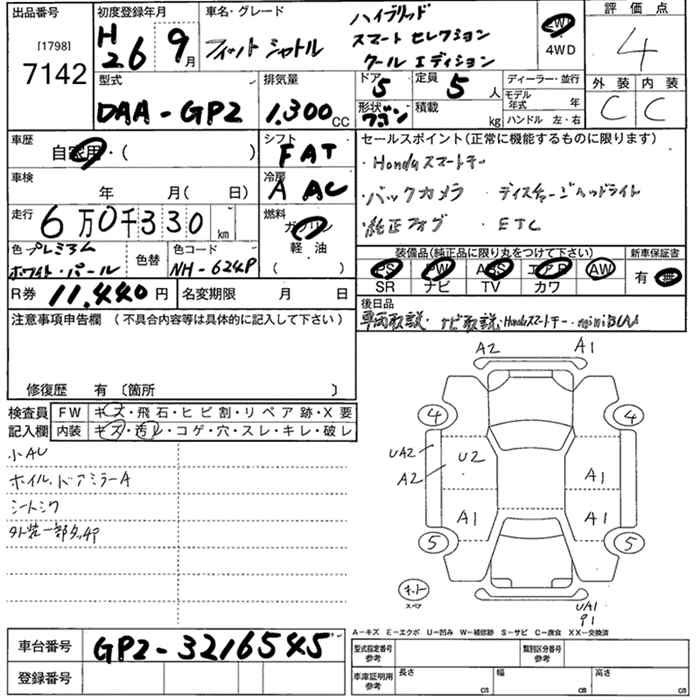 出品番号
[1798]
7142
初度登録年月
H26 9月
車名・グレード
フィット シャトル
ハイブリッド
スマート セレクション
クール エディション
2WD
4WD
評価点
4
型式
DAA-GP2
排気量
1,300CC
ドア
5
定員
5人
形状
ワゴン
積載
kg
ディーラー・並行
モデル年式 年
ハンドル 左・右
外装 内装
C C
車歴
自家用・( )
シフト
FAT
車検
年 月( 日)
冷房
A AC
走行
6万0千330km
燃料
ガソリン
軽油
( )
色
プレミアム
ホワイト・パール
色替
色コード
NH-624P
R券 11,440円
名変期限 月 日
セールスポイント(正常に機能するものに限ります)
・Hondaスマートキー
・バックカメラ ・ディスチャージヘッドライト
・純正フォグ ・ETC
装備品(純正品に限り丸をつけて下さい)
PS PW ABS エアB AW
SR ナビ TV カワ
新車保証書
有・無
後日品
車両取説・ナビ取説・Hondaスマートキー・
注意事項申告欄 (不具合内容等は具体的に記入して下さい)
修復歴 有〔箇所 〕
検査員記入欄
FW キズ・飛石・ヒビ割・リペア跡・X要
内装 キズ・汚レ・コゲ・穴・スレ・キレ・破レ
小AU
ホイル、ドアミラーA
シートシワ
外装一部タッチP
A2 A1
4 4
UA2
A2
U2
A1
A1 A1
5 5
キット
スペア
UA1
A-キズ E-エクボ U-凹み W-補修跡 S-サビ C-腐食 XX-交換済
車台番号 GP2-3216545
登録番号
型式指定番号 参考
類別区分番号 参考
車庫証明用 参考
長さ cm
幅 cm
高さ cm